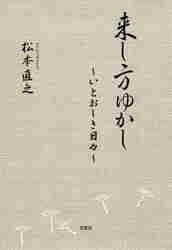 来し方ゆかし
〜いとおしき日々〜
松本直之